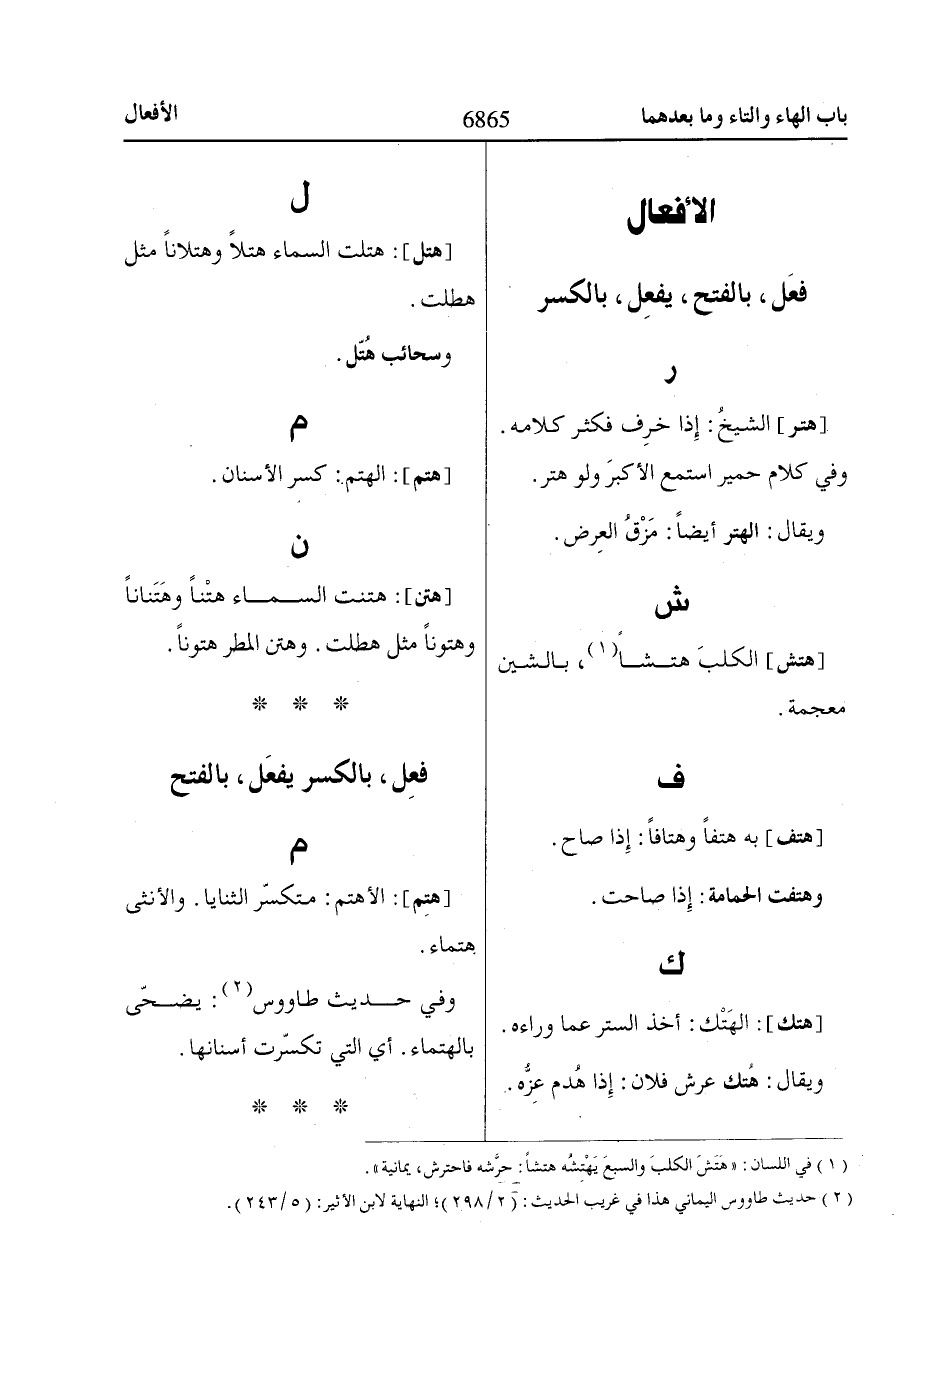 باب الهاء والتاء وما بعدهما 6865 الأفعال
الأفعال
فعَل، بالفتح، يفعِل، بالكسر
ر
[هتر] الشيخُ: إذا خرِف فكثر كلامه.
وفي كلام حمير استمع الأكبرَ ولو هتر.
ويقال: الهتر أيضاً: مَزْقُ العِرض.
ش
[هتش] الكلبَ هتشاً(١)، بالشين
معجمة.
ف
[هتف] به هتفاً وهتافاً: إذا صاح.
وهتفت الحمامة: إذا صاحت.
ك
[هتك]: الهَتْك: أخذ الستر عما وراءه.
ويقال: هُتك عرش فلان: إذا هُدم عِزُّه.
ل
[هتل]: هتلت السماء هتلاً وهتلاناً مثل
هطلت.
وسحائب هُتّل.
م
[هتم]: الهتم: كسر الأسنان.
ن
[هتن]: هتنت السماء هتْناً وهَتَناناً
وهتوناً مثل هطلت. وهتن المطر هتوناً.
* * *
فعِل، بالكسر يفعَل، بالفتح
م
[هتِم]: الأهتم: متكسّر الثنايا. والأنثى
هتماء.
وفي حديث طاووس(٢): يضحّى
بالهتماء. أي التي تكسّرت أسنانها.
* * *
(١) في اللسان: «هَتَشَ الكلبَ والسبعَ يَهْتِشُه هتشاً: حرَّشه فاحترش، يمانية».
(٢) حديث طاووس اليماني هذا في غريب الحديث: (٢/٢٩٨)؛ النهاية لابن الأثير: (٥/٢٤٣).